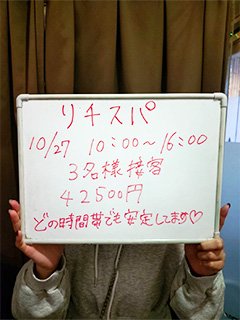 リチスパ
10/27 10:00～16:00
3名様接客
42500円
どの時間帯でも安定してます♡